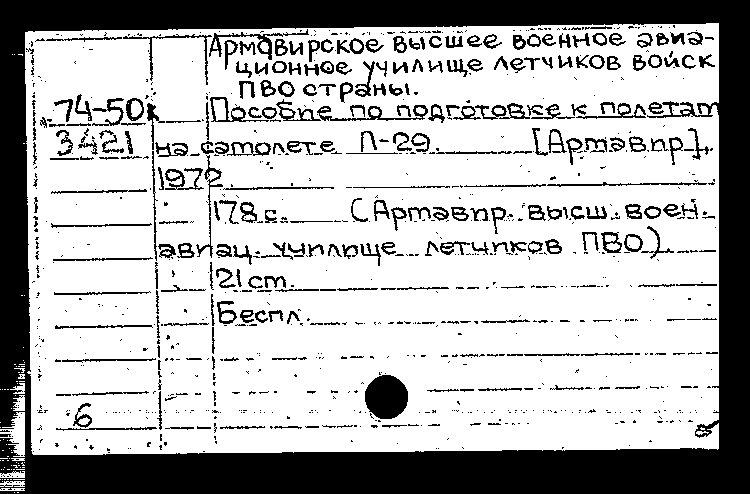 Армавирское высшее военное авиа-
ционное училище летчиков войск
ПВО страны.
74-50к Пособие по подготовке к полетам
3421 на самолете Л-29. [Армавир],
1972.
178 с. (Армавир. высш. воен.
авиац. училище летчиков ПВО).
21 cm.
Беспл.
6